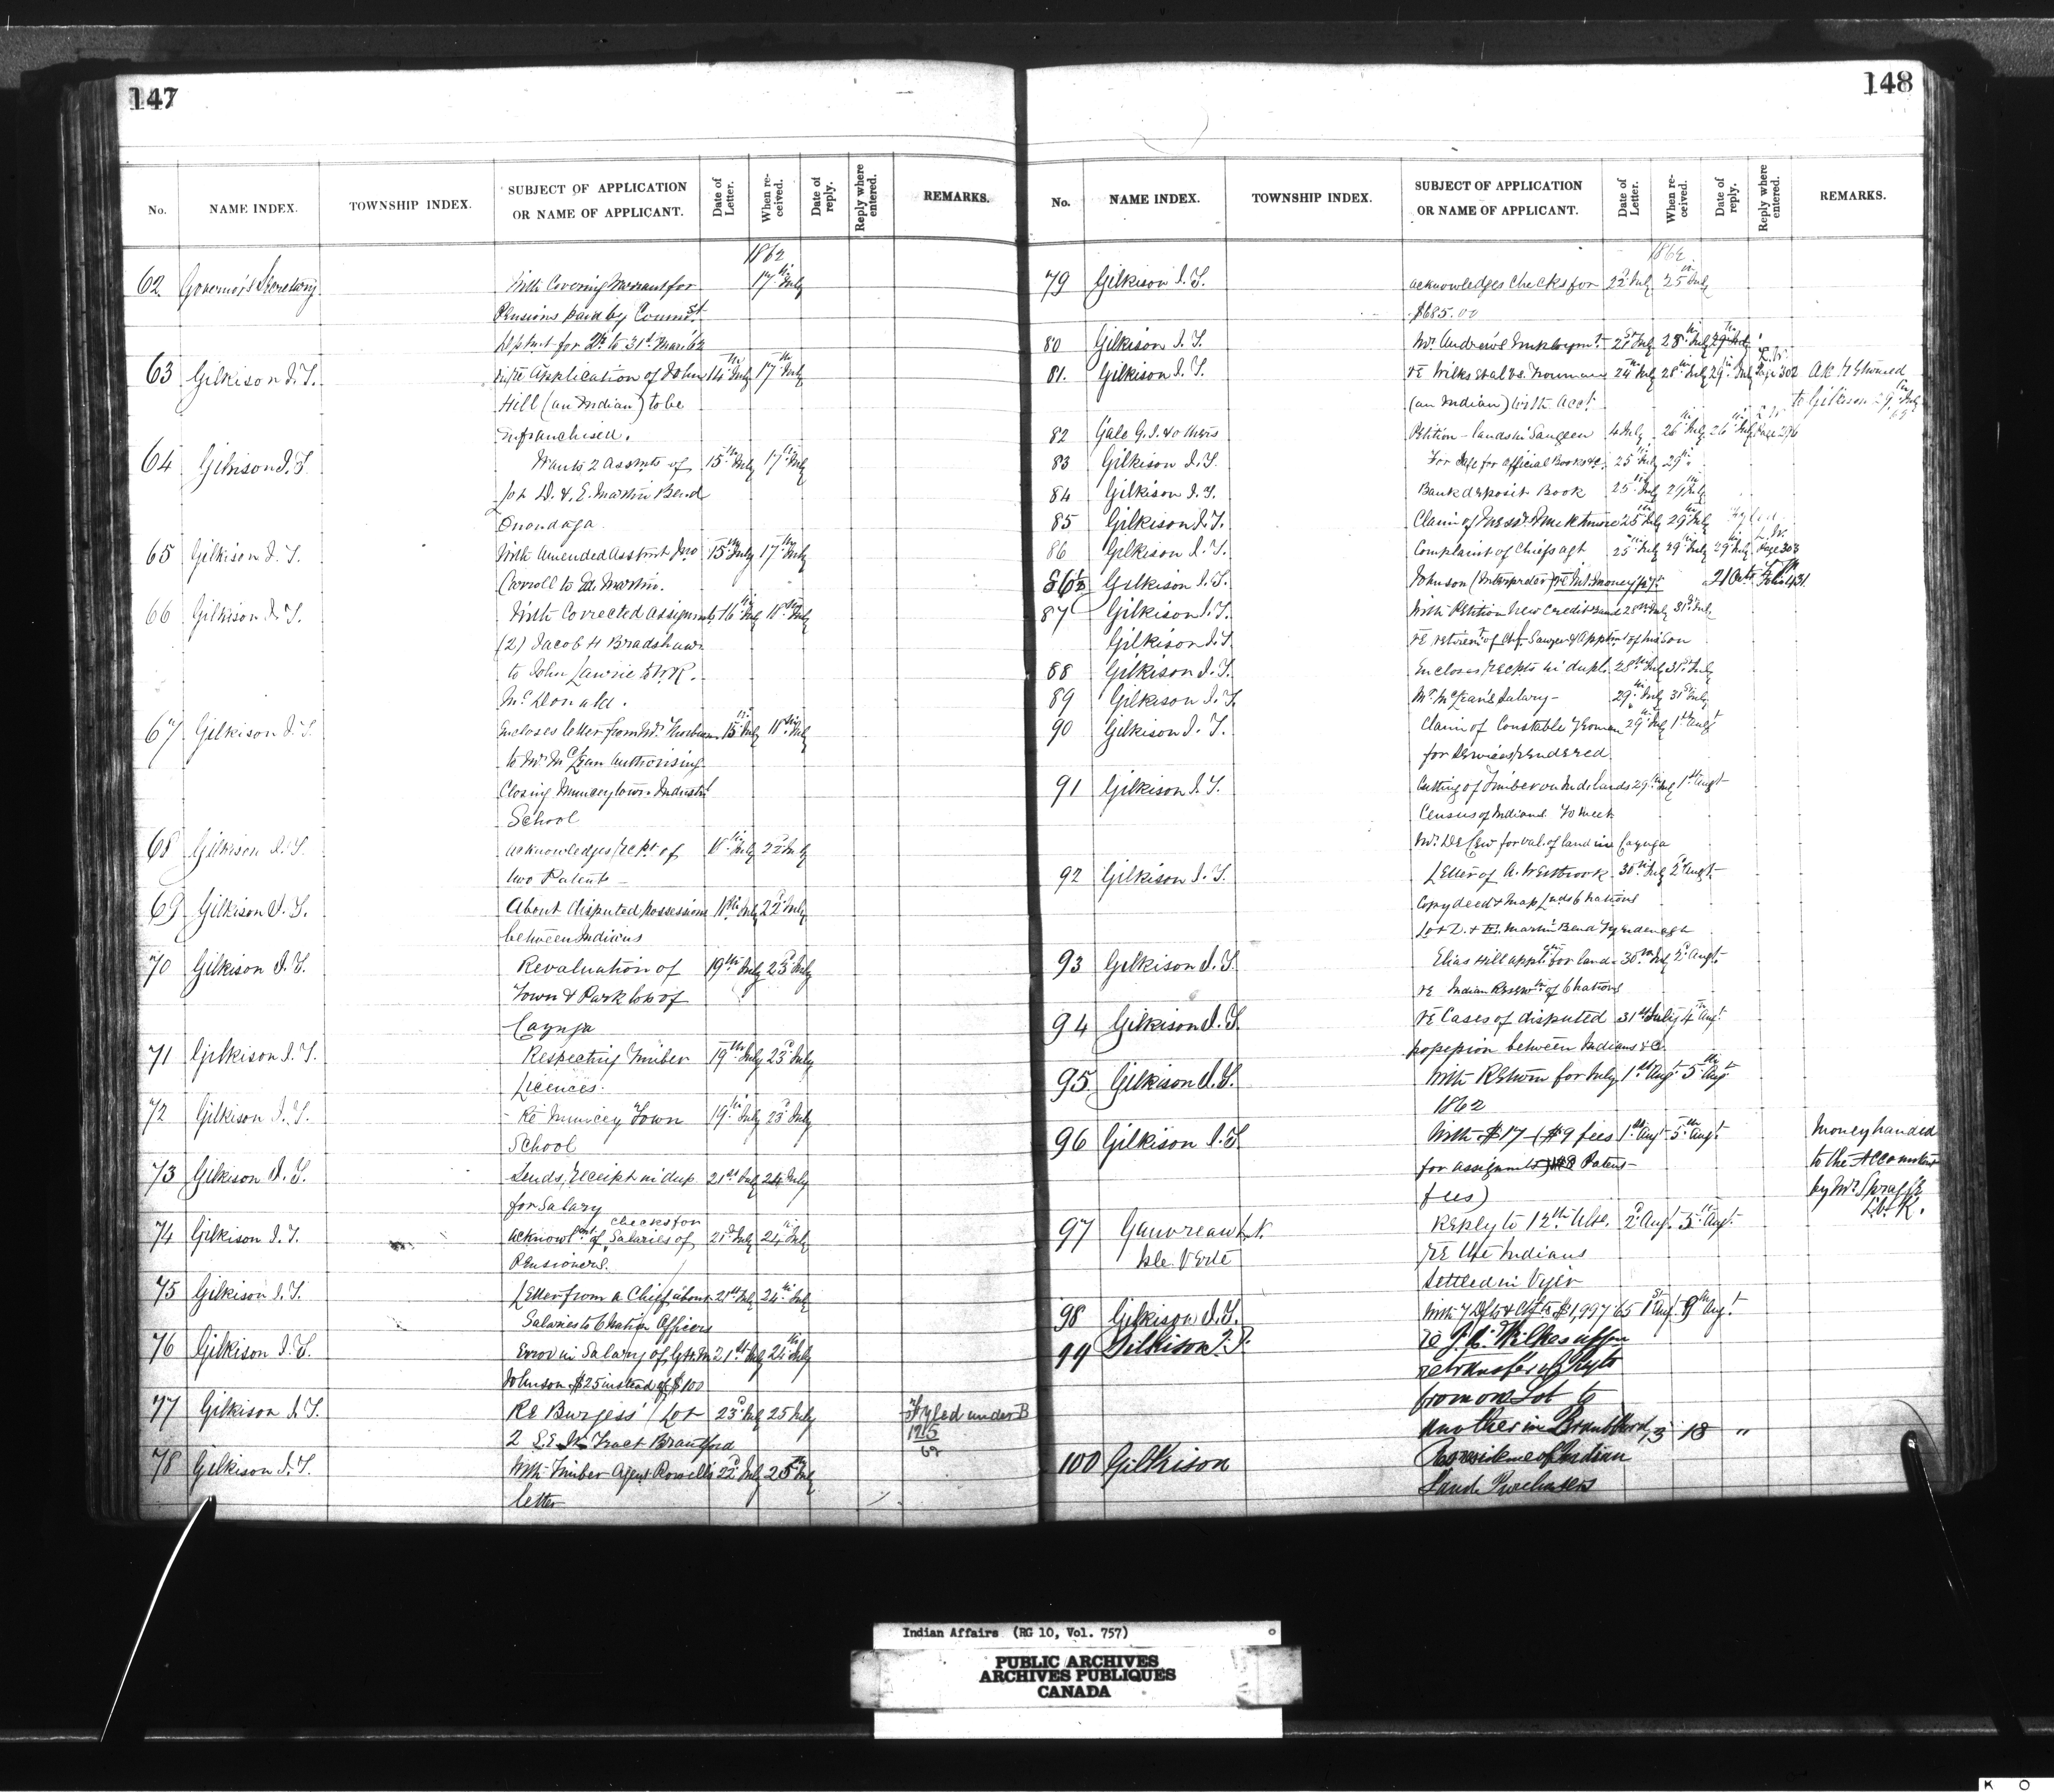 147
No. NAME INDEX. TOWNSHIP INDEX. SUBJECT OF APPLICATION OR NAME OF APPLICANT. Date of Letter. When received. Date of reply. Reply where entered. REMARKS.
1862
62 Governor's Secretary With Covering Warrant for 17th July
Pensions paid by
for to 31st Mar 62
63 Gilkison J. T. Application of John 14th July 17th July
Hill (an Indian) to be
enfranchised.
64 Gilkison J. T. Wants 2 Assmts of 15th July 17th July
Lot D. & E. Martin Bend
Onondaga
65 Gilkison J. T. With Amended Assmt Jno 15th July 17th July
Carroll to Ed. Martin.
66 Gilkison J. T. With Corrected Assignmts 16th July 18th July
(2) Jacob H Bradshaw
to John Lawrie & W. R.
McDonald.
67 Gilkison J. T. Encloses letter from Mr. 15th July 18th July
to Mr McLean Authorising
Closing Munceytown Industl
School
68 Gilkison J. T. acknowledges recpt of 18th July 22d July
two Patents
69 Gilkison J. T. About disputed possessions 18th July 22d July
between Indians
70 Gilkison J. T. Revaluation of 19th July 23d July
Town & Park lots of
Cayuga
71 Gilkison J. T. Respecting Timber 19th July 23d July
Licences.
72 Gilkison J. T. Re Muncey Town 19th July 23d July
School
73 Gilkison J. T. Sends receipt in dup 21st July 24 July
for Salary
checks for
74 Gilkison J. T. Acknowl of Salaries of 21st July 24th July
Pensioners.
75 Gilkison J. T. Letter from a Chief about 21st July 24th July
Salaries to 6 Nation Officers
76 Gilkison J. T. Error in Salary of G. H. M 21st July 24th July
Johnson $25 instead of $100
77 Gilkison J. T. Re Burgess' Lot 23d July 25 July Fyled under B
2 Tract Brantford 1215
62
78 Gilkison J. T. With Timber Agent Rowell's 22d July 25th July
letter
148
No. NAME INDEX. TOWNSHIP INDEX. SUBJECT OF APPLICATION OR NAME OF APPLICANT. Date of Letter. When received. Date of reply. Reply where entered. REMARKS.
1862
79 Gilkison J. T. acknowledges checks for 22d July 25th July
$685.00
80 Gilkison J. T. Mr. Andrew's Employmt 28th July
81. Gilkison J. T. re Wilkes et al vs. 24th July 28th July 29th July L.W. Page 302 Ac Returned
(an Indian) with acct to Gilkison 29th July
82 Gale G. J. & others Petition - lands in Saugeen 4 July 26th July 26th July L.W. Page 296
83 Gilkison J. T. For Safe for official Books &c 25th July 29th
84 Gilkison J. T. Bank deposit Book 25th July 29 July
85 Gilkison J. T. Claim of 25th July 29th July Fyled
86 Gilkison J. T. Complaint of Chiefs agt 25th July 29th July 29th July L.W. Page 303
86½ Gilkison J. T. Johnson (Interpreter) re Int. money 21 Octr Folio 431
87 Gilkison J. T. With Petition New Credit Band 28th July 31st July
Gilkison J. T. re retiremt of Chf Sawyer & Apptmt of his Son
88 Gilkison J. T. Encloses recpts in dupl. 28th July 31st July
89 Gilkison J. T. Mr. McLean's Salary - 29th July 31st July
90 Gilkison J. T. Claim of Constable Yeoman 29th July 1st Augt
for Services rendered
91 Gilkison J. T. Cutting of Timber on Ind. lands 29th July 1st Augt
Census of Indians To meet
Mr. De Cew for val. of land in Cayuga
92 Gilkison J. T. Letter of A. Westbrook 30th July 2d Augt
Copy deed & map Lands 6 nations
Lot D. & E. Martin Bend
93 Gilkison J. T. Elias Hill applctn for land 30th July 2d Augt
re Indian Reserve of 6 nations
94 Gilkison J. T. re Cases of disputed 31st July 4th Augt
possession between Indians &c
95 Gilkison J. T. With Return for July 1st Augt 5th Augt
1862
96 Gilkison J. T. With $17 ($9 fees 1st Augt 5th Augt Money handed
for assignmts $8 Patent to the Accountant
fees) by Mr. Spragge
97 Gauvreau L. N. Reply to 12th Ulto. 2d Augt 5th Augt
Isle Verte re the Indians
settled in Viger
98 Gilkison J. T. With 7 Dfts & Cfts $1,997 65 1st Augt 9th Augt
99 Gilkison J. T. re J. A. Wilkes
re transfer of
from one Lot to
another in Brantford 13 18 "
100 Gilkison Residence of Indian
Land Purchasers
Indian Affairs (RG 10, Vol. 757)
PUBLIC ARCHIVES
ARCHIVES PUBLIQUES
CANADA